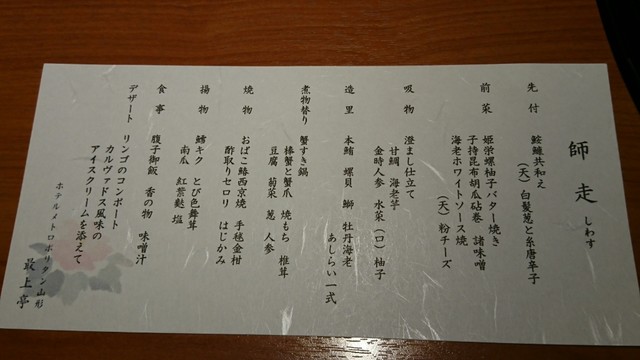 師走 しわす
先付 鮟鱇共和え
(天)白髪葱と糸唐辛子
前菜 姫栄螺柚子バター焼き
子持昆布胡瓜砧巻 諸味噌
海老ホワイトソース焼
(天)粉チーズ
吸物 澄まし仕立て
甘鯛 海老芋
金時人参 水菜(口)柚子
造里 本鮪 螺貝 鰤 牡丹海老
あしらい一式
煮物替り 蟹すき鍋
棒蟹と蟹爪 焼もち 椎茸
豆腐 菊菜 葱 人参
焼物 おばこ鰆西京焼 手毬金柑
酢取りセロリ はじかみ
揚物 鱈キク とび色舞茸
南瓜 紅葉麩 塩
食事 腹子御飯 香の物 味噌汁
デザート リンゴのコンポート
カルヴァドス風味の
アイスクリームを添えて
ホテルメトロポリタン山形
最上亭